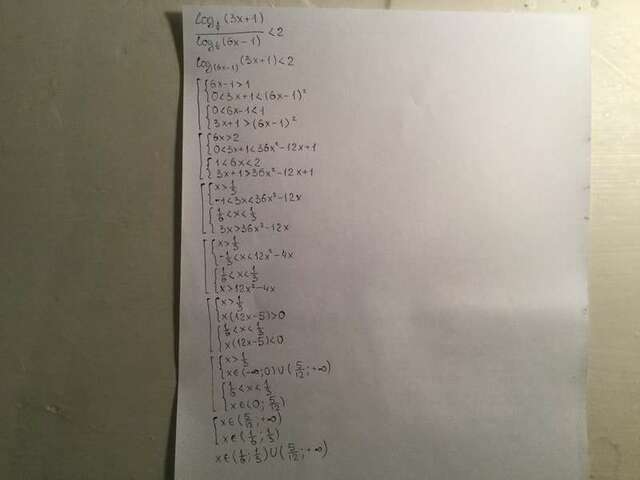 log₆(3x+1)/log₆(6x-1) < 2
log₍₆ₓ₋₁₎(3x+1) < 2
6x-1>1
0<3x+1<(6x-1)²
0<6x-1<1
3x+1>(6x-1)²
6x>2
0<3x+1<36x²-12x+1
1<6x<2
3x+1>36x²-12x+1
x>1/3
-1<3x<36x²-12x
1/6<x<1/3
3x>36x²-12x
x>1/3
-1/3<x<12x²-4x
1/6<x<1/3
x>12x²-4x
x>1/3
x(12x-5)>0
1/6<x<1/3
x(12x-5)<0
x>1/3
x∈(-∞;0)∪(5/12;+∞)
1/6<x<1/3
x∈(0;5/12)
x∈(5/12;+∞)
x∈(1/6;1/3)
x∈(1/6;1/3)∪(5/12;+∞)